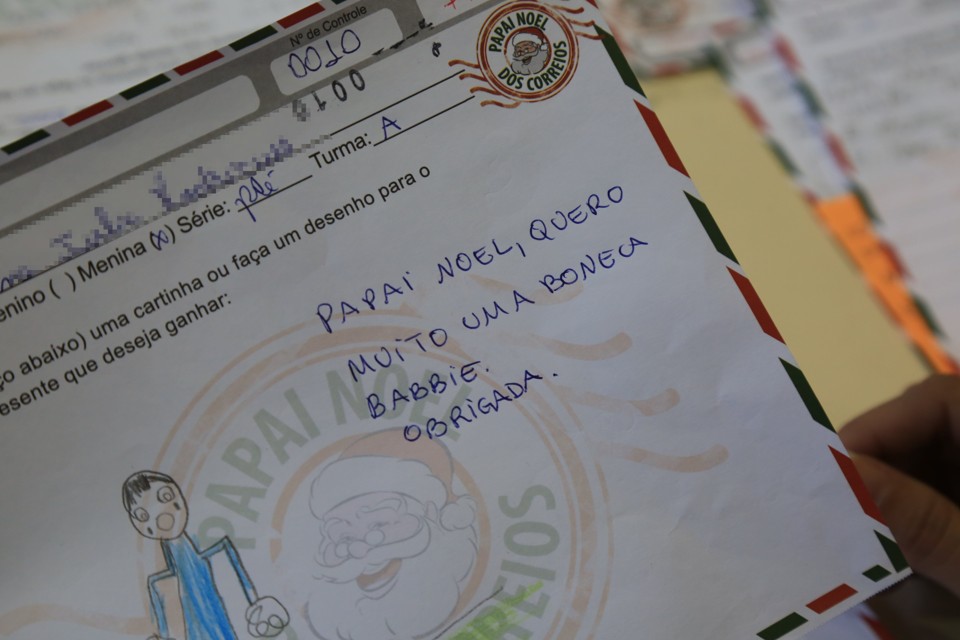 Nº de Controle
0010
0014
PAPAI NOEL
DOS CORREIOS
Turma: A
enino ( ) Menina (x) Série: pré
ço abaixo) uma cartinha ou faça um desenho para o
esente que deseja ganhar:
PAPAI NOEL, QUERO
MUITO UMA BONECA
BABBIE.
OBRIGADA.
PAPAI NOEL
CORREIOS